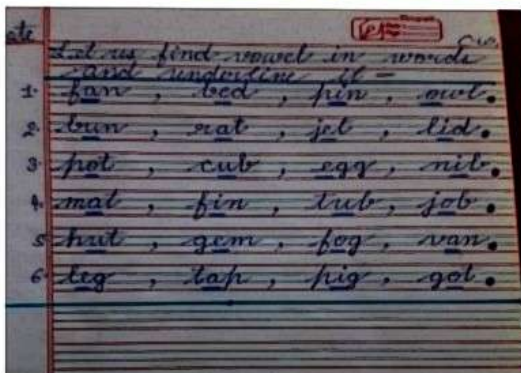 ate C.W.
Let us find vowel in words
and underline it -
1. fan , bed , pin , owl.
2. bun , rat , jet , lid.
3. pot , cub , egg , nib.
4. mat , fin , tub , job.
5. hut , gem , fog , van.
6. leg , tap , pig , got.